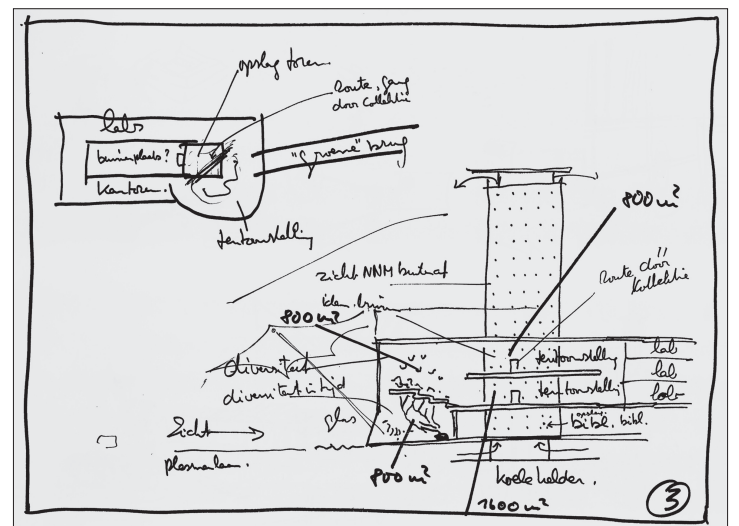 opslag toren
Route, gang
door collektie
labs
binnenplaats?
kantoren.
"groene" brug
tentoonstelling
800 m²
zicht NNM buitenaf
Route door
Kollektie
idem. binnen
800 m²
diversiteit
diversiteit in tijd
glas
tentoonstelling
tentoonstelling
lab
lab
lab
opslag
bibl. bibl.
Zicht
plesmanlaan.
800 m²
koele kelder.
1600 m²
3